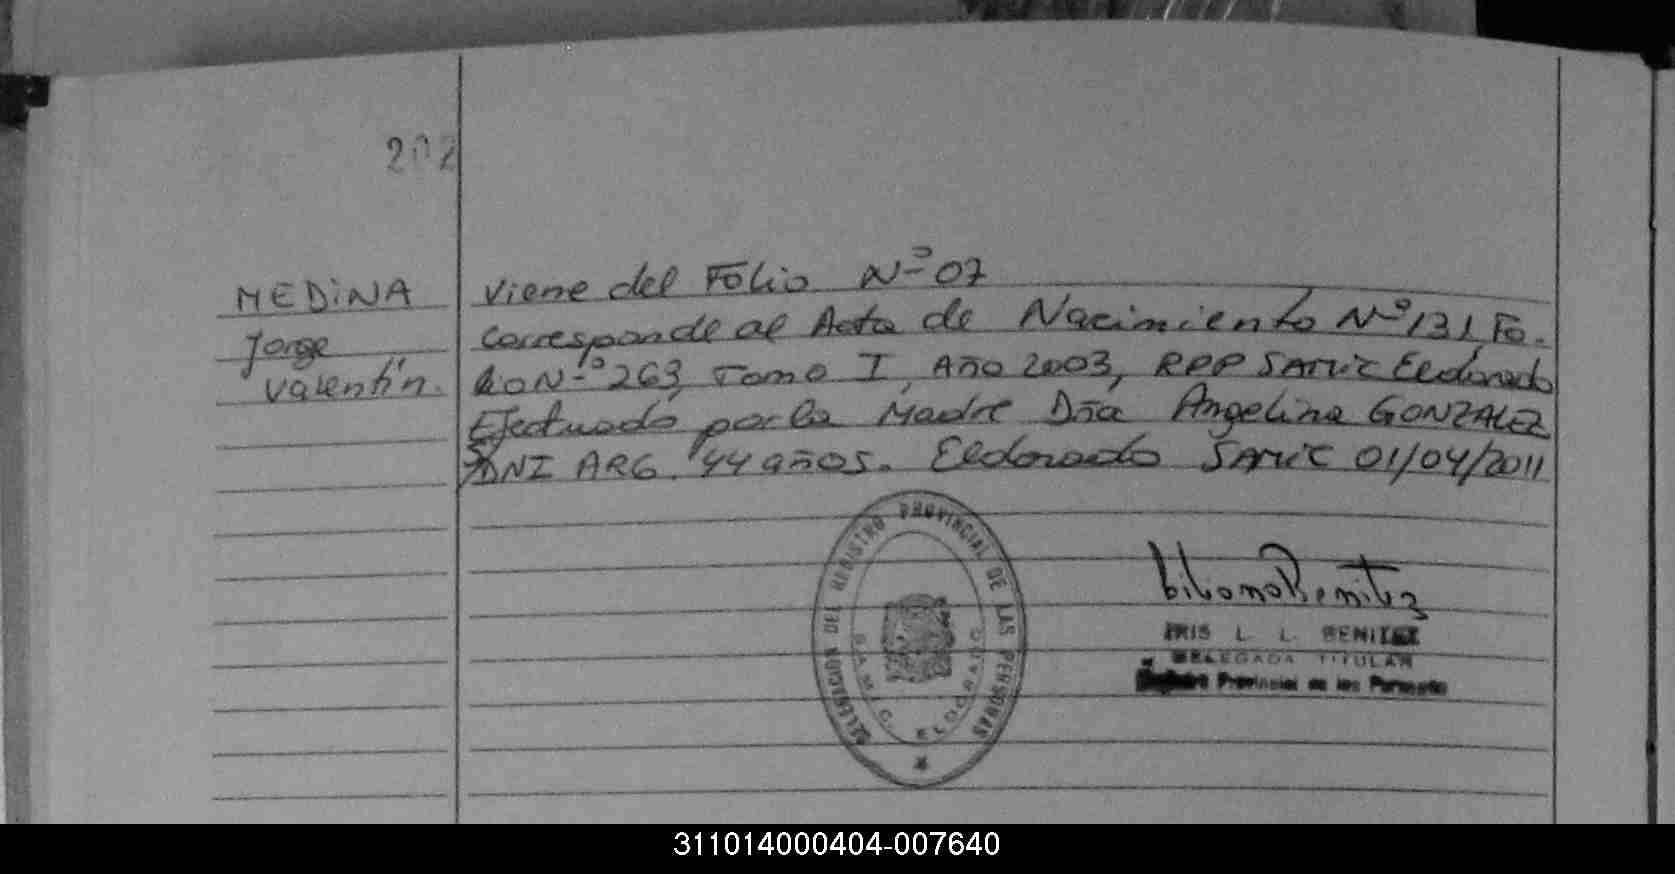 202
MEDiNA
Jorge
Valentín.
Viene del Folio Nº 07
Corresponde al Acta de Nacimiento Nº 131, Fo-
lio Nº 263, Tomo I, Año 2003, RPP SAMIC Eldorado
Efectuado por la Madre Dña Angelina GONZALEZ
DNI ARG. 44 años. Eldorado SAMIC 01/04/2011
DELEGACION DEL REGISTRO PROVINCIAL DE LAS PERSONAS
S.A.M.I.C. ELDORADO
Benitez
IRIS L. L. BENITEZ
DELEGADA TITULAR
Registro Provincial de las Personas
311014000404-007640